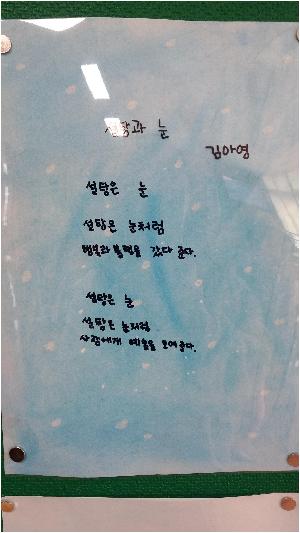 설탕과 눈
김아영
설탕은 눈
설탕은 눈처럼
행복과 불행을 갔다 준다.
설탕은 눈
설탕은 눈처럼
사람에게 예술을 보여준다.